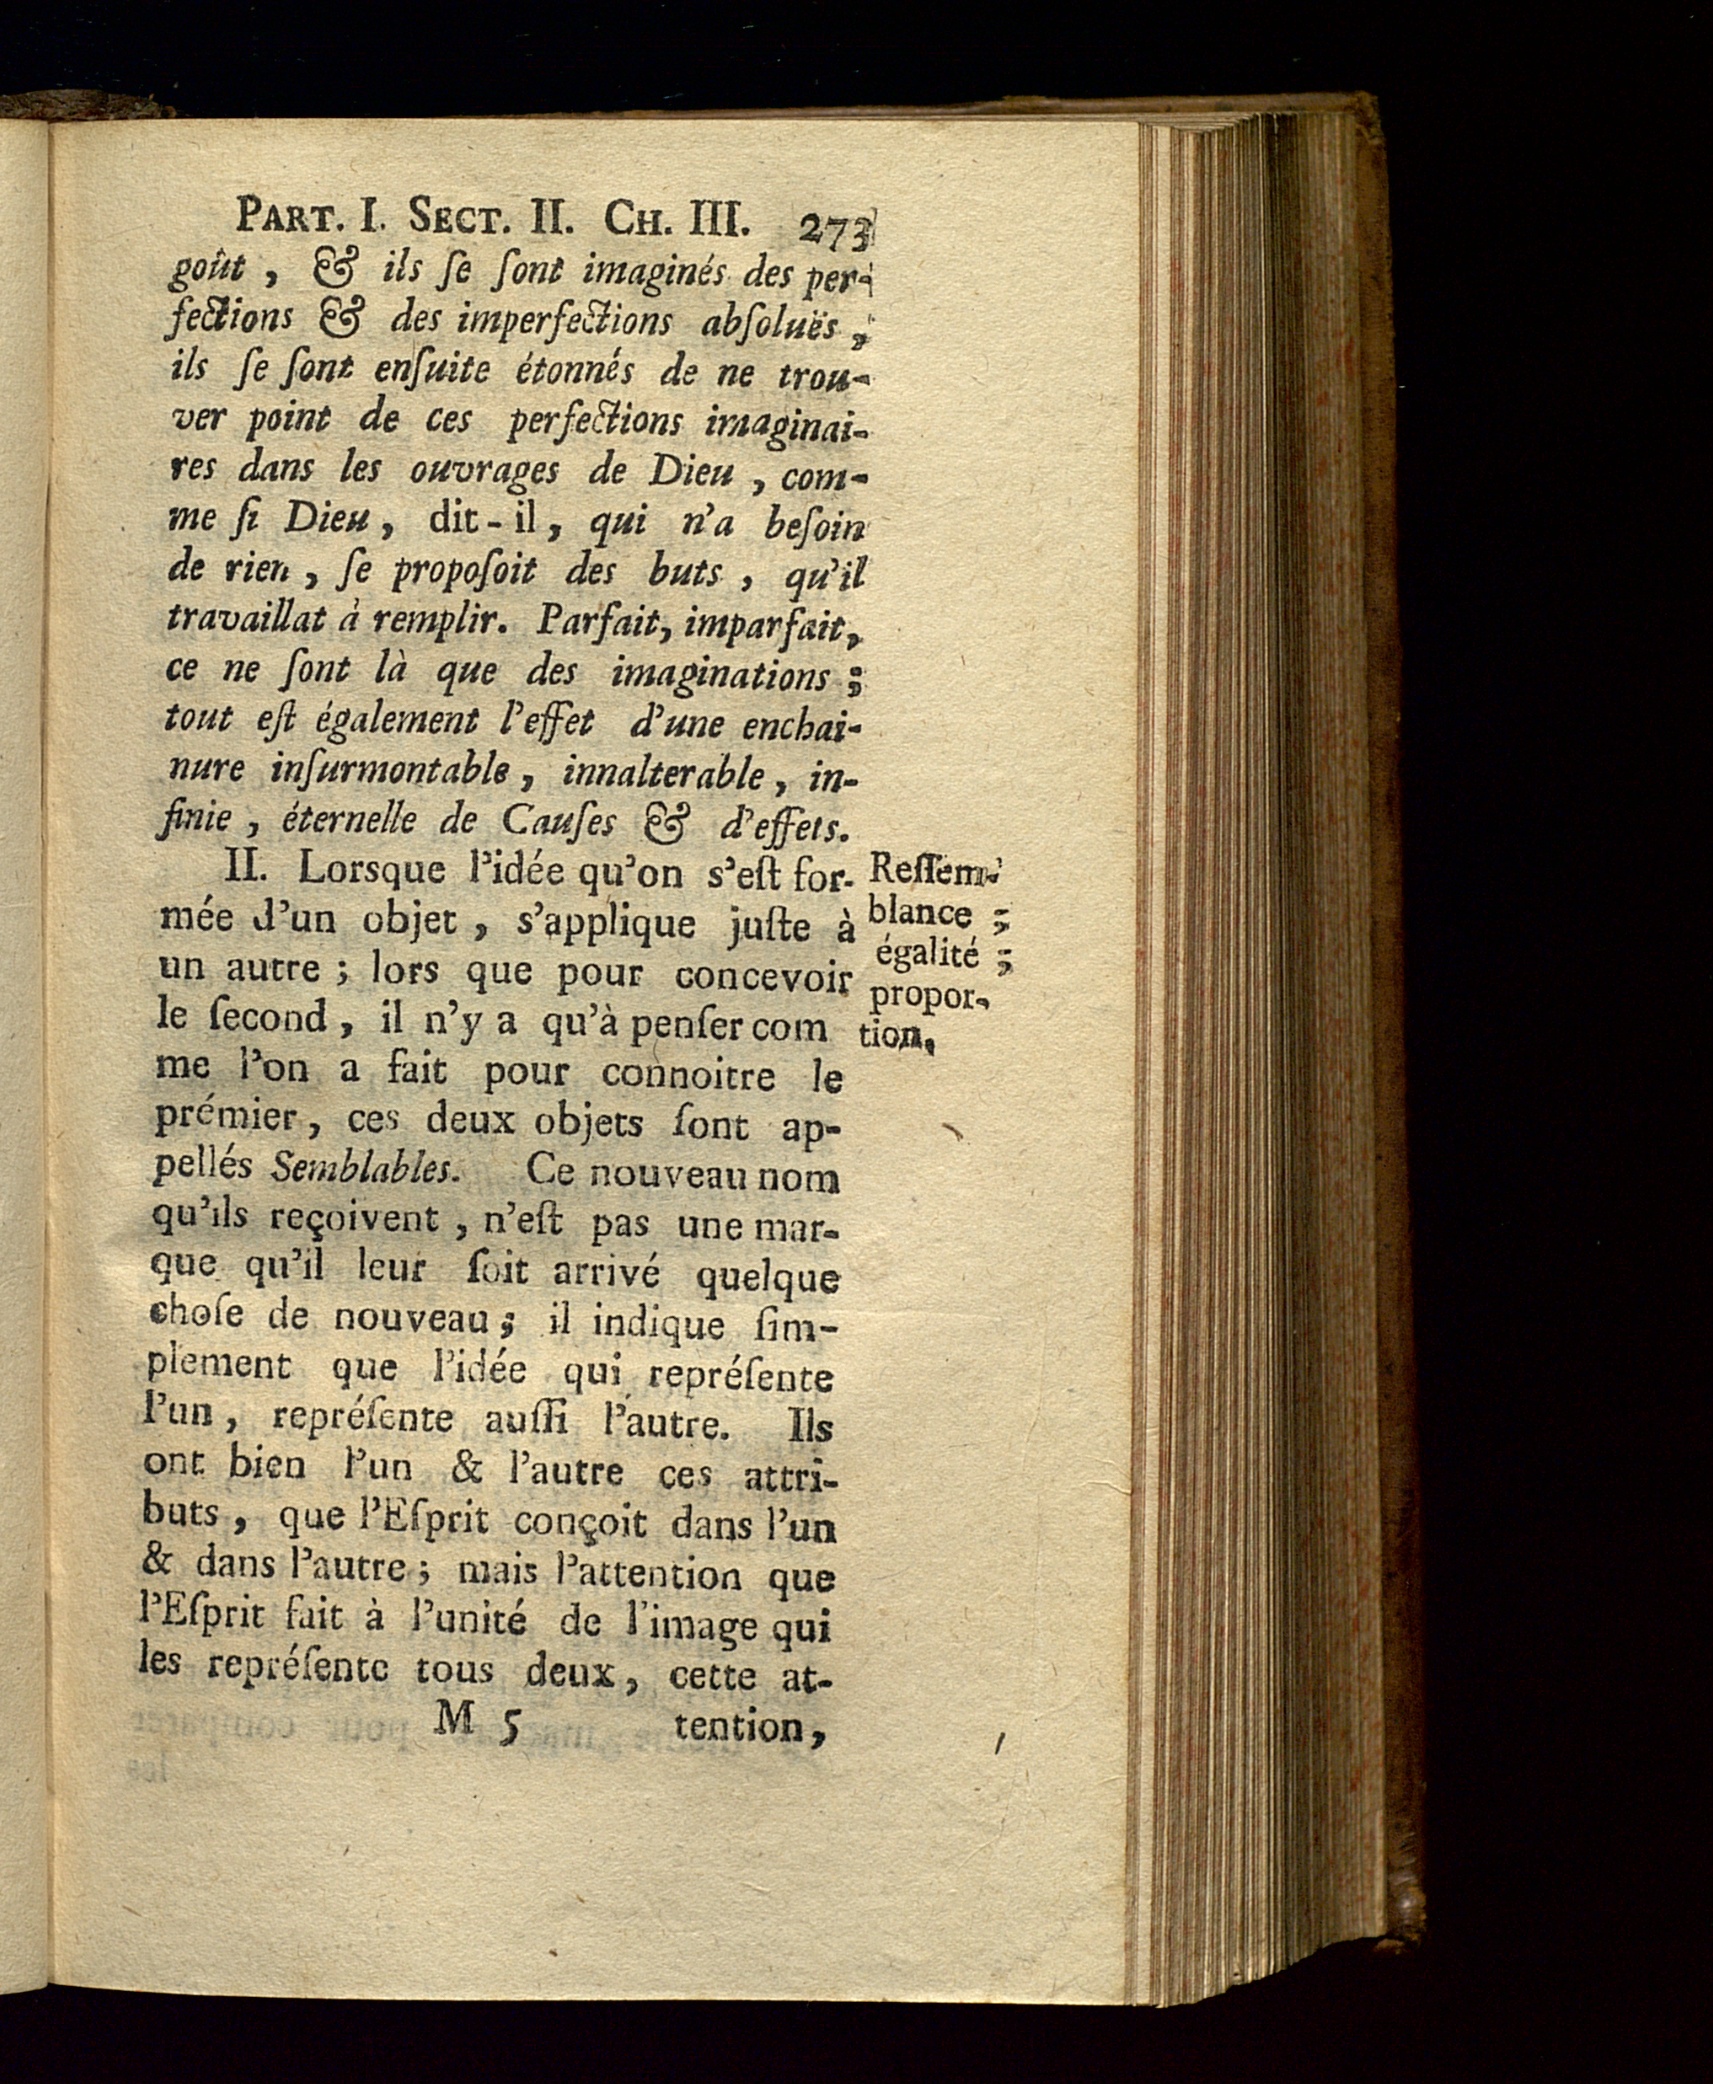 PART. I. SECT. II. CH. III. 273
goût, & ils ſe ſont imaginés des per-
fections & des imperfections abſoluës,
ils ſe ſont enſuite étonnés de ne trou-
ver point de ces perfections imaginai-
res dans les ouvrages de Dieu, com-
me ſi Dieu, dit-il, qui n'a beſoin
de rien, ſe propoſoit des buts, qu'il
travaillat à remplir. Parfait, imparfait,
ce ne ſont là que des imaginations;
tout eſt également l'effet d'une enchai-
nure inſurmontable, innalterable, in-
finie, éternelle de Cauſes & d'effets.
II. Lorsque l'idée qu'on s'eſt for-
mée d'un objet, s'applique juſte à
un autre; lors que pour concevoir
le ſecond, il n'y a qu'à penſer com
me l'on a fait pour connoitre le
prémier, ces deux objets ſont ap-
pellés Semblables. Ce nouveau nom
qu'ils reçoivent, n'eſt pas une mar-
que qu'il leur ſoit arrivé quelque
choſe de nouveau; il indique ſim-
plement que l'idée qui repréſente
l'un, repréſente auſſi l'autre. Ils
ont bien l'un & l'autre ces attri-
buts, que l'Eſprit conçoit dans l'un
& dans l'autre; mais l'attention que
l'Eſprit fait à l'unité de l'image qui
les repréſente tous deux, cette at-
M 5 tention,
Reſſem-
blance;
égalité;
propor-
tion.